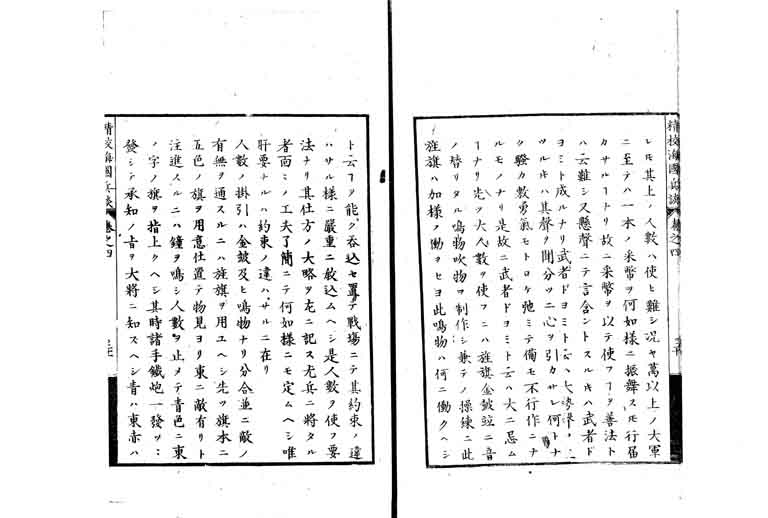 精校海國兵談 卷之四
レモ其上ノ人數ハ使ヒ難シ况ヤ萬以上ノ大軍
ニ至テハ一本ノ采幣ヲ何如樣ニ振舞スルモ行届
カサルヿナリ故ニ采幣ヲ以テ使フヿヲ善法ト
ハ云難シ又懸聲ニテ言含ントスル片ハ武者ド
ヨミト成ルナリ武者ドヨミト云ハ大勢
ツル片ハ其聲ヲ聞分ツニ心ヲ引カサレ何トナ
ク騷カ敷勇氣モトロケ弛ミテ備モ不行作ニナ
ルモノナリ是故ニ武者ドヨミト云ハ大ニ忌ム
ヿナリ先ヲ大人數ヲ使フニハ旌旗金鼓竝ニ音
ノ替リタル鳴物吹物ヲ制作シ兼テノ操練ニ此
旌旗ハ加樣ノ働ヲセヨ此鳴物ハ何ニ働クヘシ
ト云ヿヲ能ク吞込セ置テ戰塲ニテ其約束ノ違
ハサル樣ニ嚴重ニ敎込ムヘシ是人數ヲ使フ要
法ナリ其仕方ノ大略ヲ左ニ記ス尤兵ニ將タル
者面ニノ工夫了簡ニテ何如樣ニモ定ムヘシ唯
肝要ナルハ約束ノ違ハサルニ在リ
人數ノ掛引ハ金鼓及ヒ鳴物ナリ分合並ニ敵ノ
有無ヲ通スルニハ旌旗ヲ用ユヘシ先ツ旗本ニ
五色ノ旗ヲ用意仕置テ物見ヨリ東ニ敵有リト
注進スルニハ鐘ヲ鳴シ人數ヲ止メテ青色ニ東
ノ字ノ旗ヲ指上クヘシ其時諸手鐵炮一發ツヽ
發シテ承知ノ旨ヲ大將ニ知スヘシ青ハ東赤ハ
精校海國兵談 卷之四